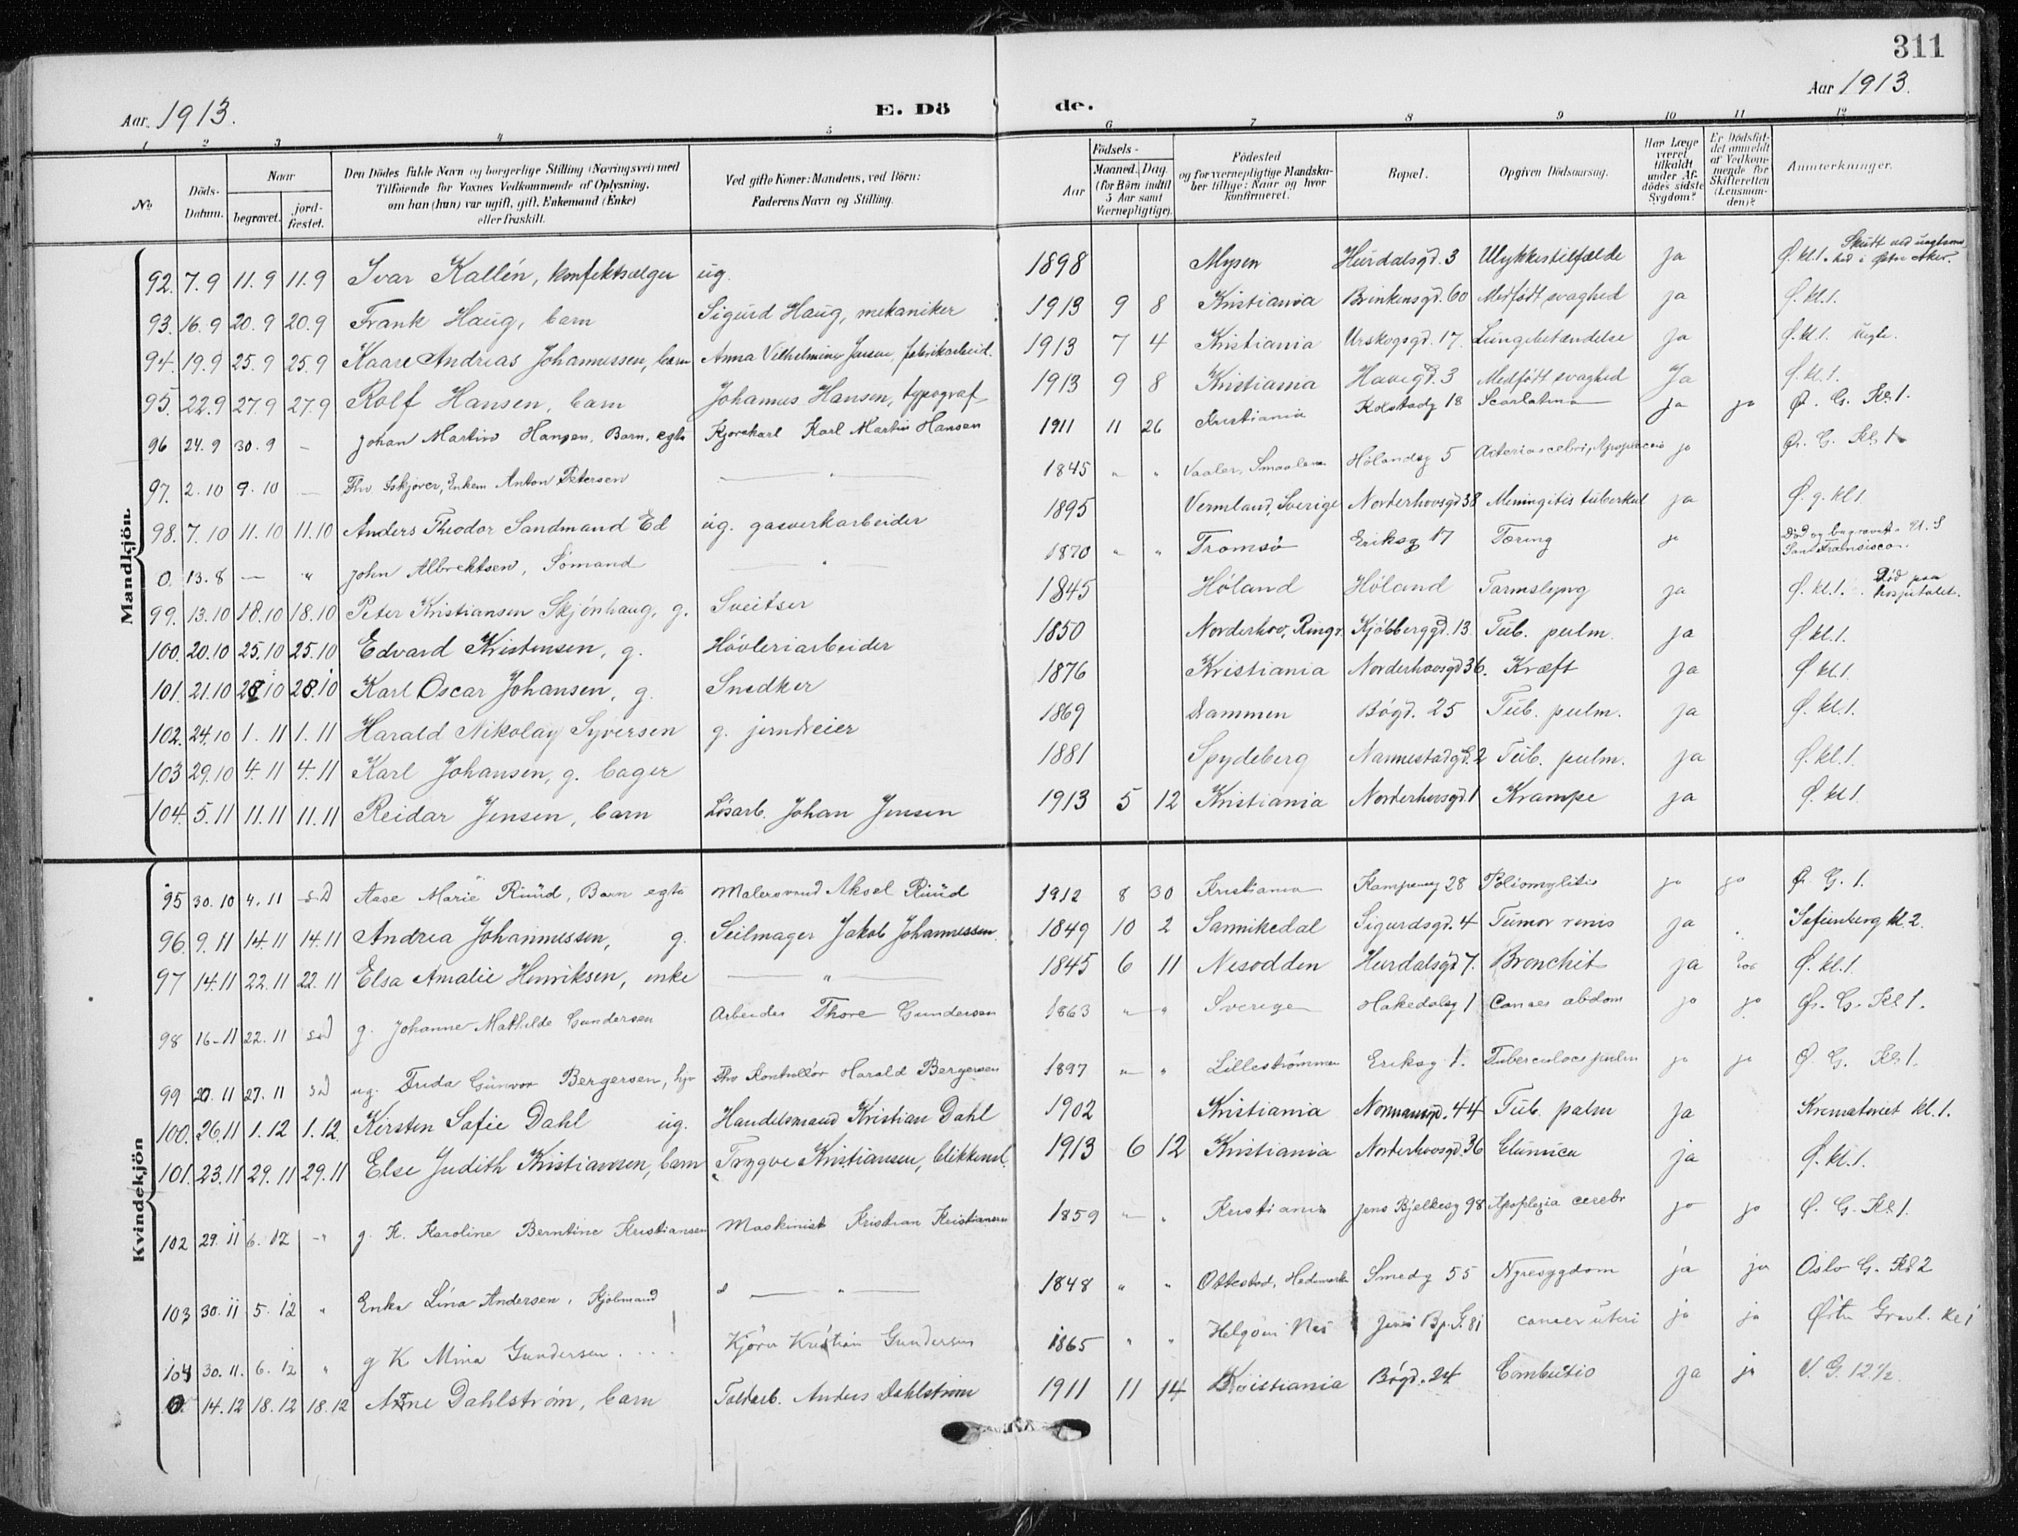 311
Aar. 1913.
E. Döde.
Aar 1913.
1 2 3 4 5 6 7 8 9 10 11 12
No
Döds-Datum.
Naar
begravet.
jordfæstet.
Den Dödes fulde Navn og borgerlige Stilling (Næringsvei) med
Tilföiende for Voxnes Vedkommende af Oplysning,
om han (hun) var ugift, gift, Enkemand (Enke)
eller fraskilt.
Ved gifte Koner: Mandens, ved Börn:
Faderens Navn og Stilling.
Födsels-
Aar
Maaned. Dag
(for Börn indtil
5 Aar samt
Værnepligtige).
Födested
og for værnepligtige Mandskaber tillige: Naar og hvor
konfirmeret.
Bopæl.
Opgiven Dödsaarsag.
Har Læge været tilkaldt under Afdödes sidste Sygdom?
Er Dödsfaldet anmeldt af Vedkommende for Skifteretten (Lensmanden)?
Anmærkninger.
Mandkjön.
92. 7.9 11.9 11.9 Ivar Kallén, konfektsælger ug. 1898 Mysen Hurdalsgd. 3 Ulykkestilfælde ja Ø. kl.1. Skudt ved i Østre Aker.
93. 16.9 20.9 20.9 Frank Haug, barn Sigurd Haug, mekaniker 1913 9 8 Kristiania Brinkensgd. 60 Medfødt svaghed ja Ø. kl.1.
94. 19.9 25.9 25.9 Kaare Andreas Johannessen, barn Anna Vilhelmine Jensen, fabrikarbeid. 1913 7 4 Kristiania Urskogsgd. 17. Lungebetændelse ja Ø. kl.1. uegte.
95. 22.9 27.9 27.9 Rolf Hansen, barn Johannes Hansen, typograf 1913 9 8 Kristiania Havegd. 3 Medfødt svaghed Ja Ø. kl.1.
96 24.9 30.9 - Johan Martin Hansen, Barn, egte Kjørekarl Karl Martin Hansen 1911 11 26 Kristiania Kolstadg 18 Scarlatina ja ja Ø. G. Kl 1.
97. 2.10 9.10 - Enkem Anton Petersen — " — 1845 " " Vaaler, Smaalene Hølandsg 5 ja Ø. G. Kl 1
98. 7.10 11.10 11.10 Anders Theodor Sandmand Ed ug. gasverkarbeider 1895 Vermland, Sverige Norderhovsgd 38 Meningitis tuberkul ja Ø. g. kl 1
0. 13.8 — " John Albrektsen, Sømand " 1870 " " Tromsø Eriksg 17 Tæring ja Død og begravet U.S San Fransisco.
99. 13.10 18.10 18.10 Peter Kristiansen Skjønhaug, g. Sveitser 1845 Høland Høland Tarmslyng ja Ø. kl.1. Død paa hospitalet.
100. 20.10 25.10 25.10 Edvard Kristensen, g. Høvleriarbeider 1850 Norderhov, Ringr. Kjølberggd. 13. Tub. pulm. ja Ø kl.1.
101. 21.10 28.10 28.10 Karl Oscar Johansen, g. Snedker 1876 Kristiania Norderhovsgd 36. Kræft ja Ø kl.1.
102. 24.10 1.11 1.11 Harald Nikolay Syversen g. jerndreier 1869 Drammen Bøgd. 25 Tub. pulm. ja Ø. kl 1.
103 29.10 4.11 4.11 Karl Johansen, g. bager 1881 Spydeberg Nannestadgd. 2 Tub. pulm. ja Ø. kl 1.
104. 5.11 11.11 11.11 Reidar Jensen, barn Løsarb. Johan Jensen 1913 5 12 Kristiania Norderhovsgd. 1 Krampe ja Ø. kl 1.
Kvindekjön
95 30.10 4.11 sd Aase Marie Ruud, Barn egte Malersvend Aksel Ruud 1912 8 30 Kristiania Kampeng 28 Poliomylitis ja ja Ø. G. 1.
96. 9.11 14.11 14.11 Andrea Johannessen, g. Seilmager Jakob Johannessen. 1849 10 2 Sannikedal Sigurdsgd. 4 Tumor renis ja Sofienberg kl. 2.
97 14.11 22.11 22.11 Elsa Amalie Henriksen, enke — " — 1845 6 11 Nesodden Hurdalsgd 7. Bronchit ja Ø. kl.1.
98 16-11 22.11 sd g. Johanne Mathilde Gundersen Arbeider Thore Gundersen 1863 " " Sverige Hakedalsg 1 Cancer abdom ja ja Ø. G. Kl 1.
99 20.11 27.11 sd ug. Frida Gunvor Bergersen, hjv Kontrollør Harald Bergersen 1897 " " Lillestrømmen Eriksg 1. Tuberculoes pulm ja ja Ø. G. Kl 1.
100. 26.11 1.12 1.12. Kirsten Sofie Dahl ug. Handelsmand Kristian Dahl 1902 Kristiania Normannsgd. 44 Tub. pulm ja Krematoriet kl. 1.
101. 23.11 29.11 29.11 Else Judith Kristiansen, barn Trygve Kristiansen, blikkensl. 1913 6 12 Kristiania Norderhovsgd. 36 ja Ø. kl.1.
102 29.11 6.12 -" g. K. Karoline Berntine Kristiansen Maskinist Kristian Kristiansen 1859 " " Kristiania Jens Bjelkesg 98 Apoplexia cerebr ja ja Ø. G. Kl 1.
103 30.11 5.12 " Enke Lina Andersen, Kjøbmand — " — 1848 " " Ottestad, Hedemarken Smedg 55 Nyresygdom ja ja Oslo G. Kl 2
104 30.11. 6.12 " g K Mina Gundersen.... Kjører Kristian Gundersen 1865 " " Helgøen Nes Jens Bj. G. 81 cancer uteri ja ja Østr Gravl. Kl 1
0. 14.12 18.12 18.12 Arne Dahlstrøm, barn Toldarb. Anders Dahlstrøm 1911 11 14 Kristiania Bøgd. 24 Combustio ja ja V. G. 12½